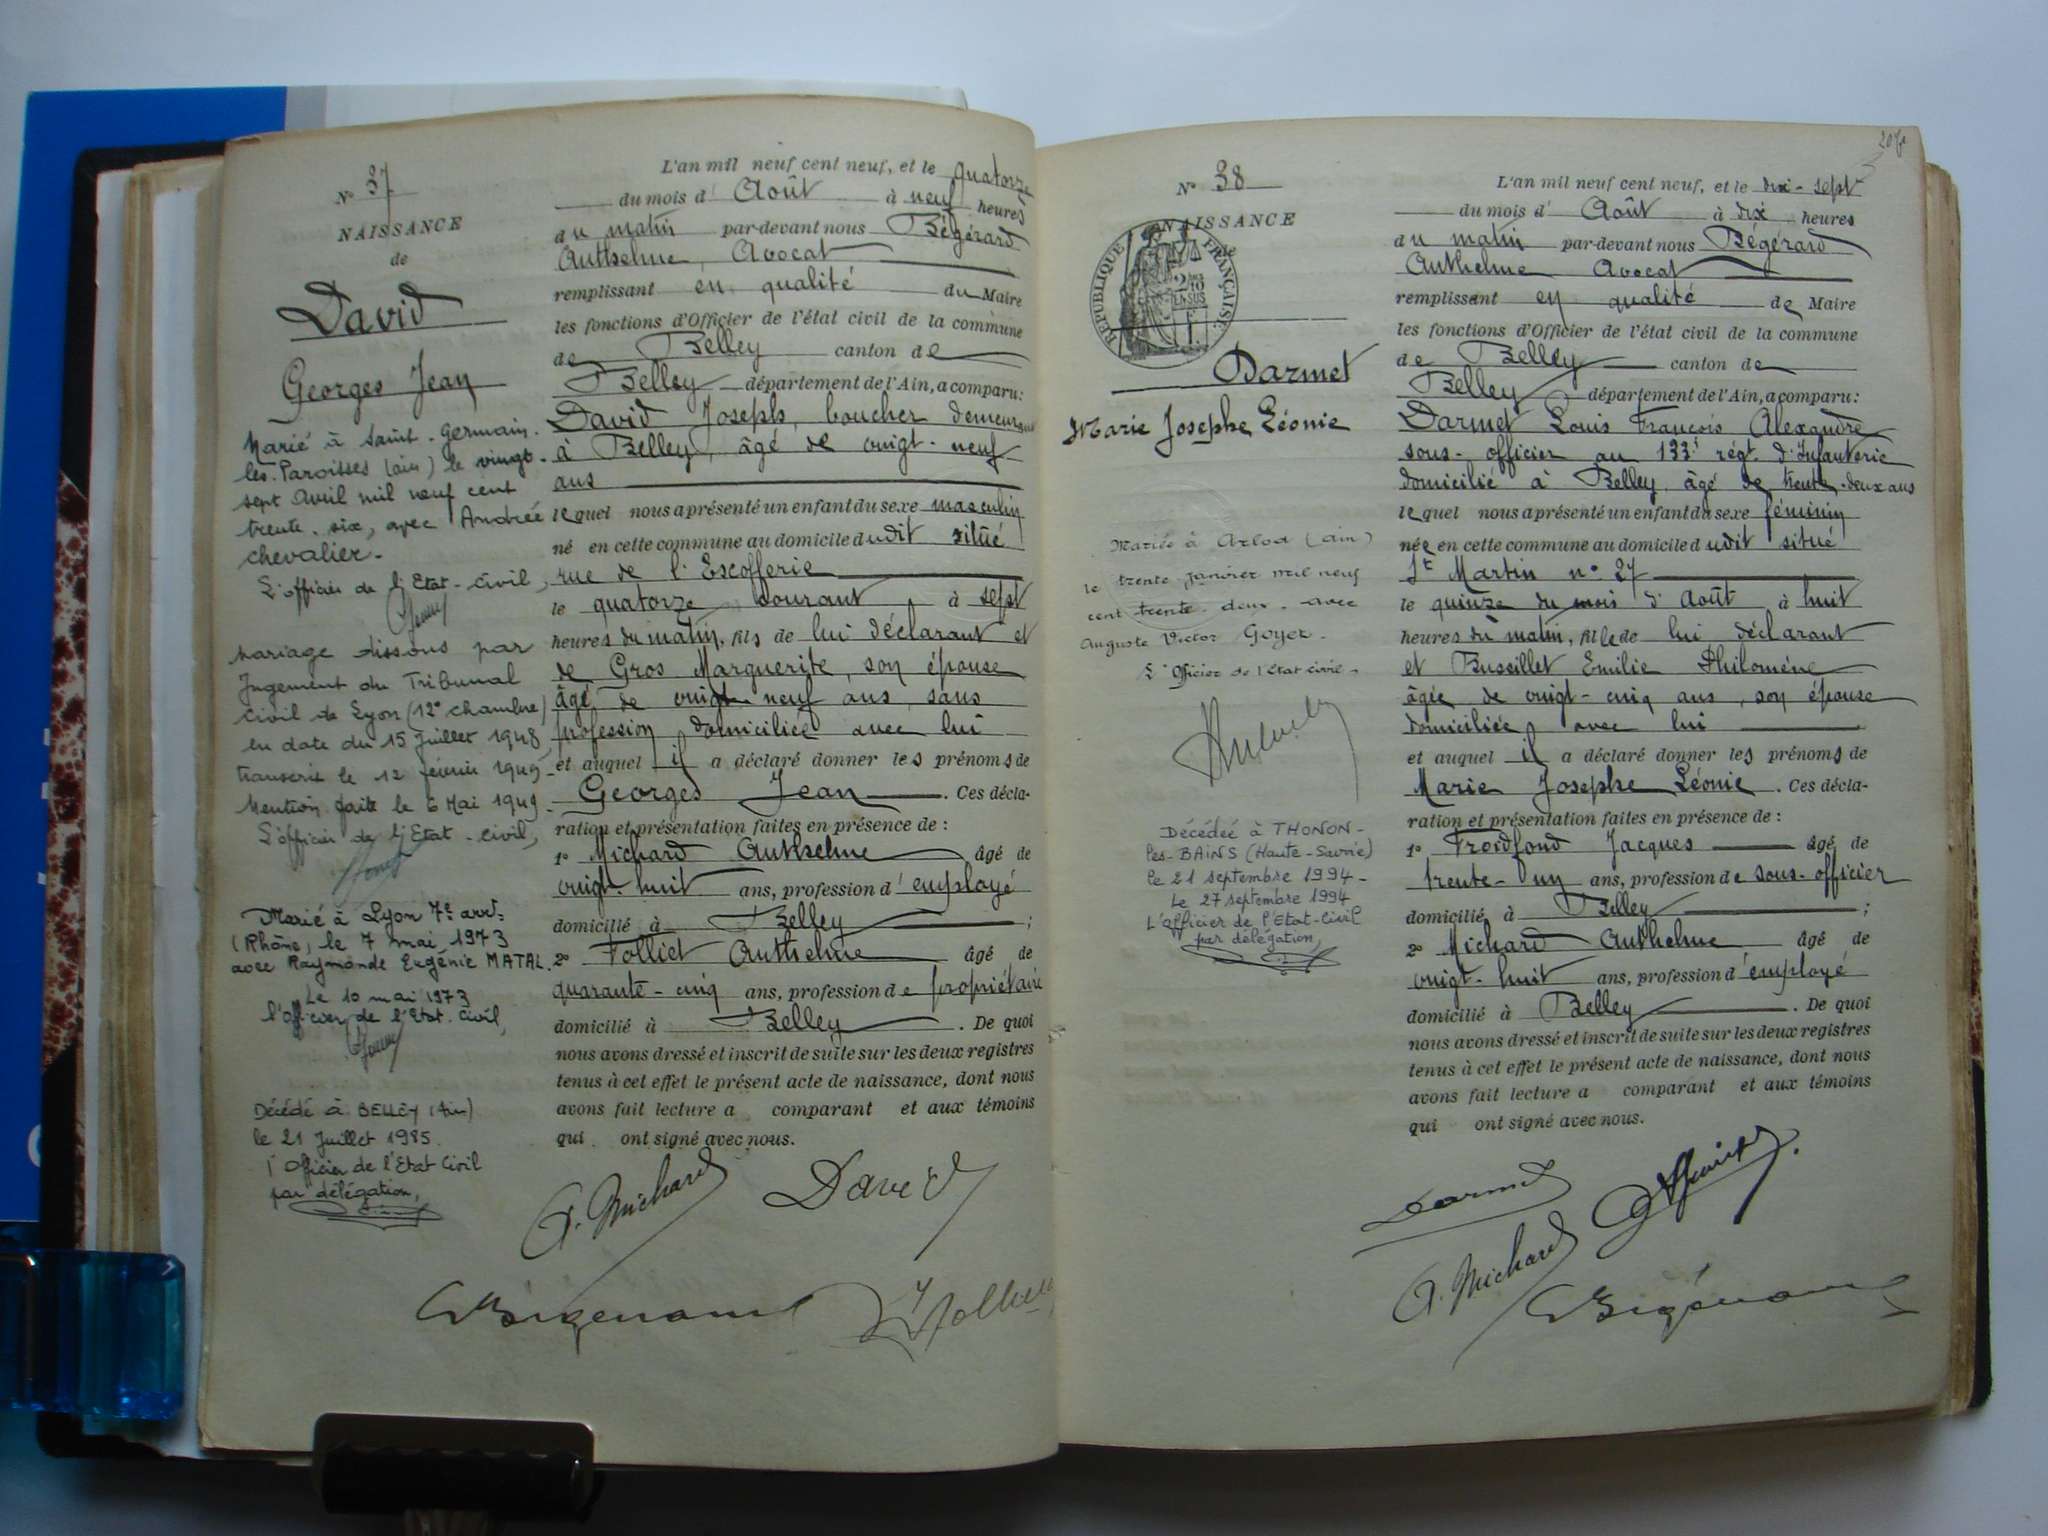 N° 37
NAISSANCE
de
David
Georges Jean
Marié à Saint-Germain-
les-Paroisses (ain) le vingt-
sept avril mil neuf cent
trente-six, avec Andrée
chevalier.
L'officier de l'Etat-civil,
Mariage dissous par
Jugement du Tribunal
civil de Lyon (12e chambre)
en date du 15 Juillet 1948,
transcrit le 12 février 1949.
Mention faite le 6 Mai 1949.
L'officier de l'Etat-civil,
Marié à Lyon 7e arrt.
(Rhône) le 7 mai 1973
avec Raymonde Eugénie MATAL.
Le 10 mai 1973
l'officier de l'Etat-civil,
Décédé à BELLEY (Ain)
le 21 Juillet 1985.
l'Officier de l'Etat Civil
par délégation,
L'an mil neuf cent neuf, et le quatorze
du mois d' Août à neuf heures
du matin par-devant nous Bégérard
Anthelme, Avocat
remplissant en qualité du Maire
les fonctions d'Officier de l'état civil de la commune
de Belley canton de
Belley département de l'Ain, a comparu:
David Joseph, boucher demeurant
à Belley, âgé de vingt-neuf
ans
lequel nous a présenté un enfant du sexe masculin
né en cette commune au domicile dudit situé
rue de l'Escofferie
le quatorze courant à sept
heures du matin, fils de lui déclarant et
de Gros Marguerite, son épouse
âgé de vingt neuf ans, sans
profession domiciliée avec lui
et auquel il a déclaré donner les prénoms de
Georges Jean. Ces décla-
ration et présentation faites en présence de :
1° Michard Anthelme âgé de
vingt-huit ans, profession d'employé
domicilié à Belley ;
2° Folliet Anthelme âgé de
quarante-cinq ans, profession de propriétaire
domicilié à Belley. De quoi
nous avons dressé et inscrit de suite sur les deux registres
tenus à cet effet le présent acte de naissance, dont nous
avons fait lecture a comparant et aux témoins
qui ont signé avec nous.
A. Michard David
Bégérard Folliet
208
N° 38
NAISSANCE
de
RÉPUBLIQUE FRANÇAISE
2/10 EN SUS
Darmet
Marie Josephe Léonie
Mariée à Arlod (ain)
le trente janvier mil neuf
cent trente-deux avec
Auguste Victor Goyet.
L'Officier de l'état civil.
Décédée à THONON-
les-BAINS (Haute-Savoie)
le 21 septembre 1994-
Le 27 septembre 1994
L'officier de l'Etat-Civil
par délégation,
L'an mil neuf cent neuf, et le dix-sept
du mois d' Août à dix heures
du matin par-devant nous Bégérard
Anthelme Avocat
remplissant en qualité de Maire
les fonctions d'Officier de l'état civil de la commune
de Belley canton de
Belley département de l'Ain, a comparu:
Darmet Louis François Alexandre
sous-officier au 133e régt d'Infanterie
domicilié à Belley, âgé de trente-deux ans
lequel nous a présenté un enfant du sexe féminin
née en cette commune au domicile dudit situé
St Martin n° 27
le quinze du mois d'Août à huit
heures du matin, fille de lui déclarant
et Busseillet Emilie Philomène
âgée de vingt-cinq ans, son épouse
domiciliée avec lui
et auquel il a déclaré donner les prénoms de
Marie Josephe Léonie. Ces décla-
ration et présentation faites en présence de :
1° Froidfond Jacques âgé de
trente-un ans, profession de sous-officier
domicilié à Belley ;
2° Michard Anthelme âgé de
vingt-huit ans, profession d'employé
domicilié à Belley. De quoi
nous avons dressé et inscrit de suite sur les deux registres
tenus à cet effet le présent acte de naissance, dont nous
avons fait lecture a comparant et aux témoins
qui ont signé avec nous.
Darmet
A. Michard
Bégérard